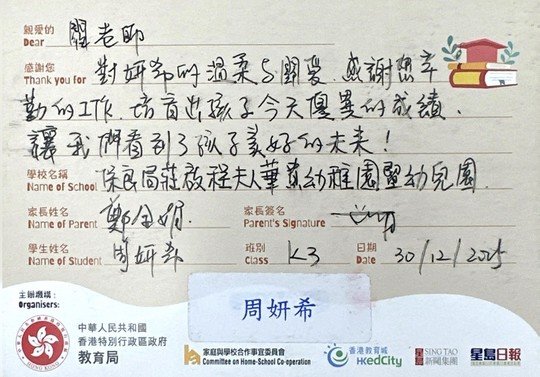 親愛的
Dear 老師
感謝您
Thank you for 對妍希的溫柔与關愛. 感謝您辛
勤的工作, 培育出孩子今天優異的成績,
讓我們看到了孩子美好的未来!
學校名稱
Name of School 保良局莊啟程夫人華貴幼稚園暨幼兒園
家長姓名 家長簽名
Name of Parent 鄭金娟 Parent's Signature
學生姓名 班別 日期
Name of Student 周妍希 Class K3 Date 30/12/2025
周妍希
主辦機構:
Organisers:
HONG KONG
中華人民共和國
香港特別行政區政府
教育局
家庭與學校合作事宜委員會
Committee on Home-School Co-operation
香港教育城
HKedCity
星島 SING TAO
新聞集團
星島日報